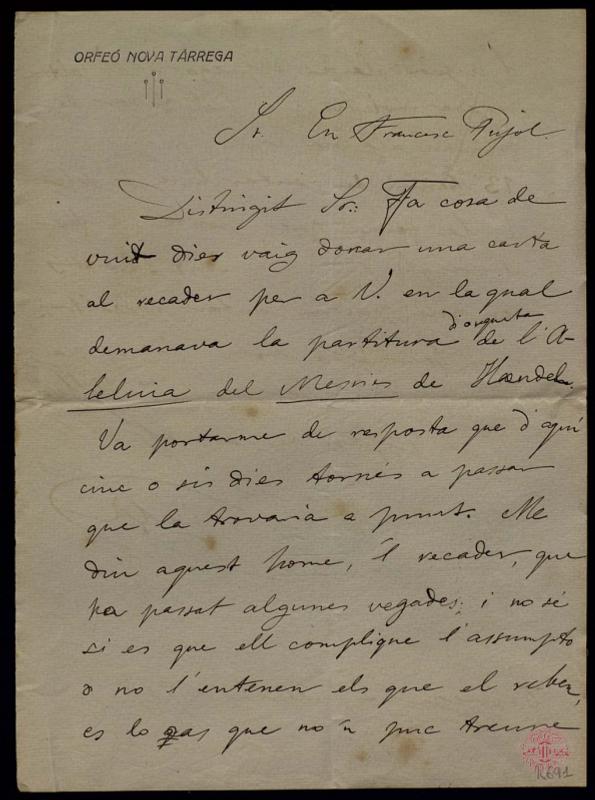 ORFEÓ NOVA TÀRREGA
Sr. En Francesc Pujol.
Distingit Sr.: Fa cosa de
vuit dies vaig donar una carta
al recader per a V. en la qual
d'orquesta
demanava la partitura de l'A-
leluia del Messies de Haendel.
Va portarme de resposta que d'aquí
cinc o sis dies tornés a passar
que la trovaria a punt. Me
diu aquest home, 'l recader, que
ha passat algunes vegades; i no sé
si es que ell complique l'assumpto
o no l'entenen els que el reben,
es lo cas que no 'n puc treure
R.691